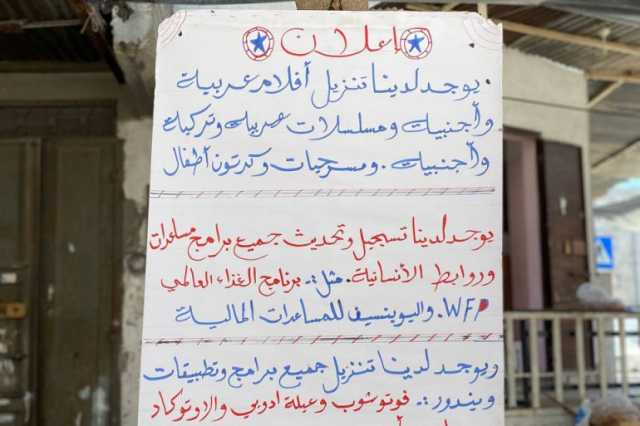 إعلان
يوجد لدينا تنزيل أفلام عربية
وأجنبية ومسلسلات عربية وتركية
وأجنبية. ومسرحيات وكرتون أطفال
يوجد لدينا تسجيل وتحديث جميع برامج مساعدات
وروابط الأنسانية. مثل:. برنامج الغذاء العالمي
WFP. واليونيسيف للمساعدات المالية
ويوجد لدينا تنزيل جميع برامج وتطبيقات
ويندوز:. فوتوشوب وعبلة ادوبي والاوتوكاد